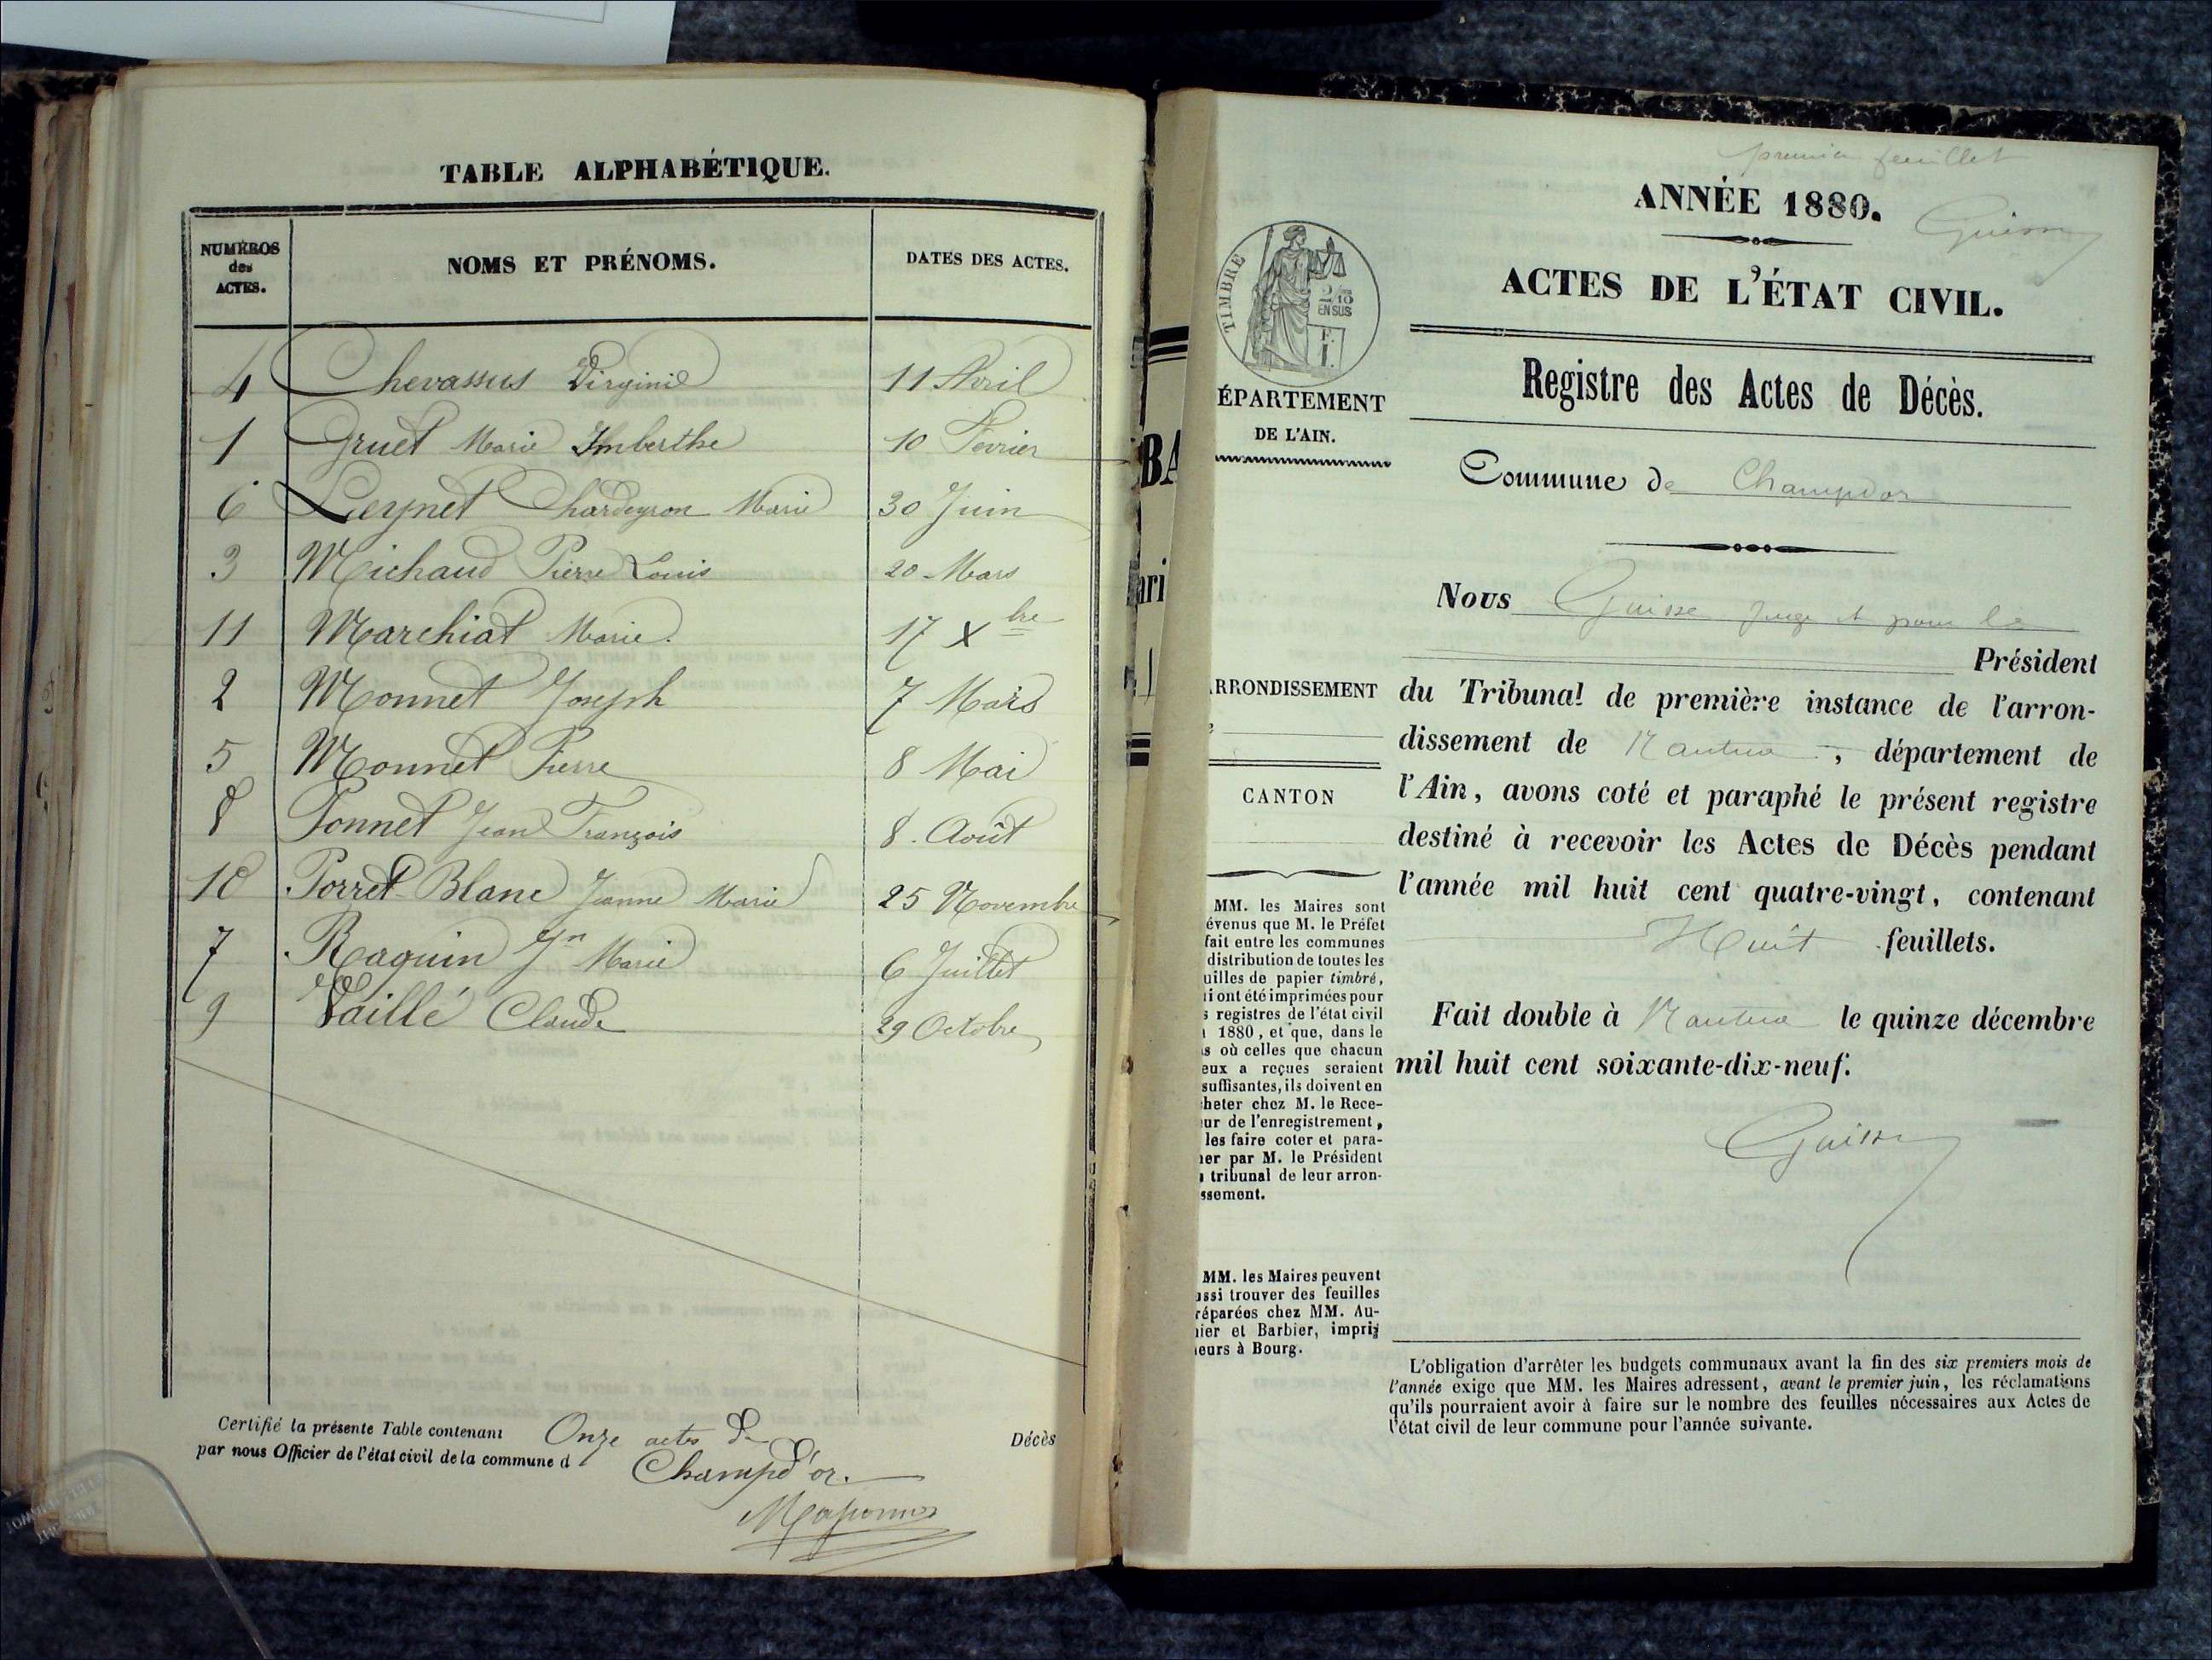 TABLE ALPHABÉTIQUE.
NUMÉROS des ACTES.
NOMS ET PRÉNOMS.
DATES DES ACTES.
4 Chevassus Virginie 11 Avril
1 Gruet Marie Imberthe 10 Fevrier
6 Leynet Chardeyron Marie 30 Juin
3 Michaud Pierre Louis 20 Mars
11 Marchiat Marie. 17 Xbre
2 Monnet Joseph 7 Mars
5 Monnet Pierre 8 Mai
8 Ponnet Jean François 8. Août
10 Porret-Blanc Jeanne Marie 25 Novembre
7 Raquin Jn Marie 6 Juillet
9 Vaillé Claude 29 Octobre
Certifié la présente Table contenant Onze actes de Décès
par nous Officier de l'état civil de la commune d Champd'or.
BA
ari
premier feuillet
ANNÉE 1880.
Guisse
ACTES DE L'ÉTAT CIVIL.
TIMBRE
2/10
EN SUS
Registre des Actes de Décès.
ÉPARTEMENT
DE L'AIN.
Commune de Champdor
Nous Guisse Juge et pour le
Président
du Tribunal de première instance de l'arron-
dissement de Nantua, département de
l'Ain, avons coté et paraphé le présent registre
destiné à recevoir les Actes de Décès pendant
l'année mil huit cent quatre-vingt, contenant
Huit feuillets.
Fait double à Nantua le quinze décembre
mil huit cent soixante-dix-neuf.
Guisse
RRONDISSEMENT
CANTON
MM. les Maires sont
évenus que M. le Préfet
fait entre les communes
distribution de toutes les
uilles de papier timbré,
i ont été imprimées pour
s registres de l'état civil
1880, et que, dans le
s où celles que chacun
eux a reçues seraient
suffisantes, ils doivent en
heter chez M. le Rece-
ur de l'enregistrement,
les faire coter et para-
er par M. le Président
tribunal de leur arron-
ssement.
MM. les Maires peuvent
ussi trouver des feuilles
réparées chez MM. Au-
nier et Barbier, impri
eurs à Bourg.
L'obligation d'arrêter les budgets communaux avant la fin des six premiers mois de
l'année exige que MM. les Maires adressent, avant le premier juin, les réclamations
qu'ils pourraient avoir à faire sur le nombre des feuilles nécessaires aux Actes de
l'état civil de leur commune pour l'année suivante.